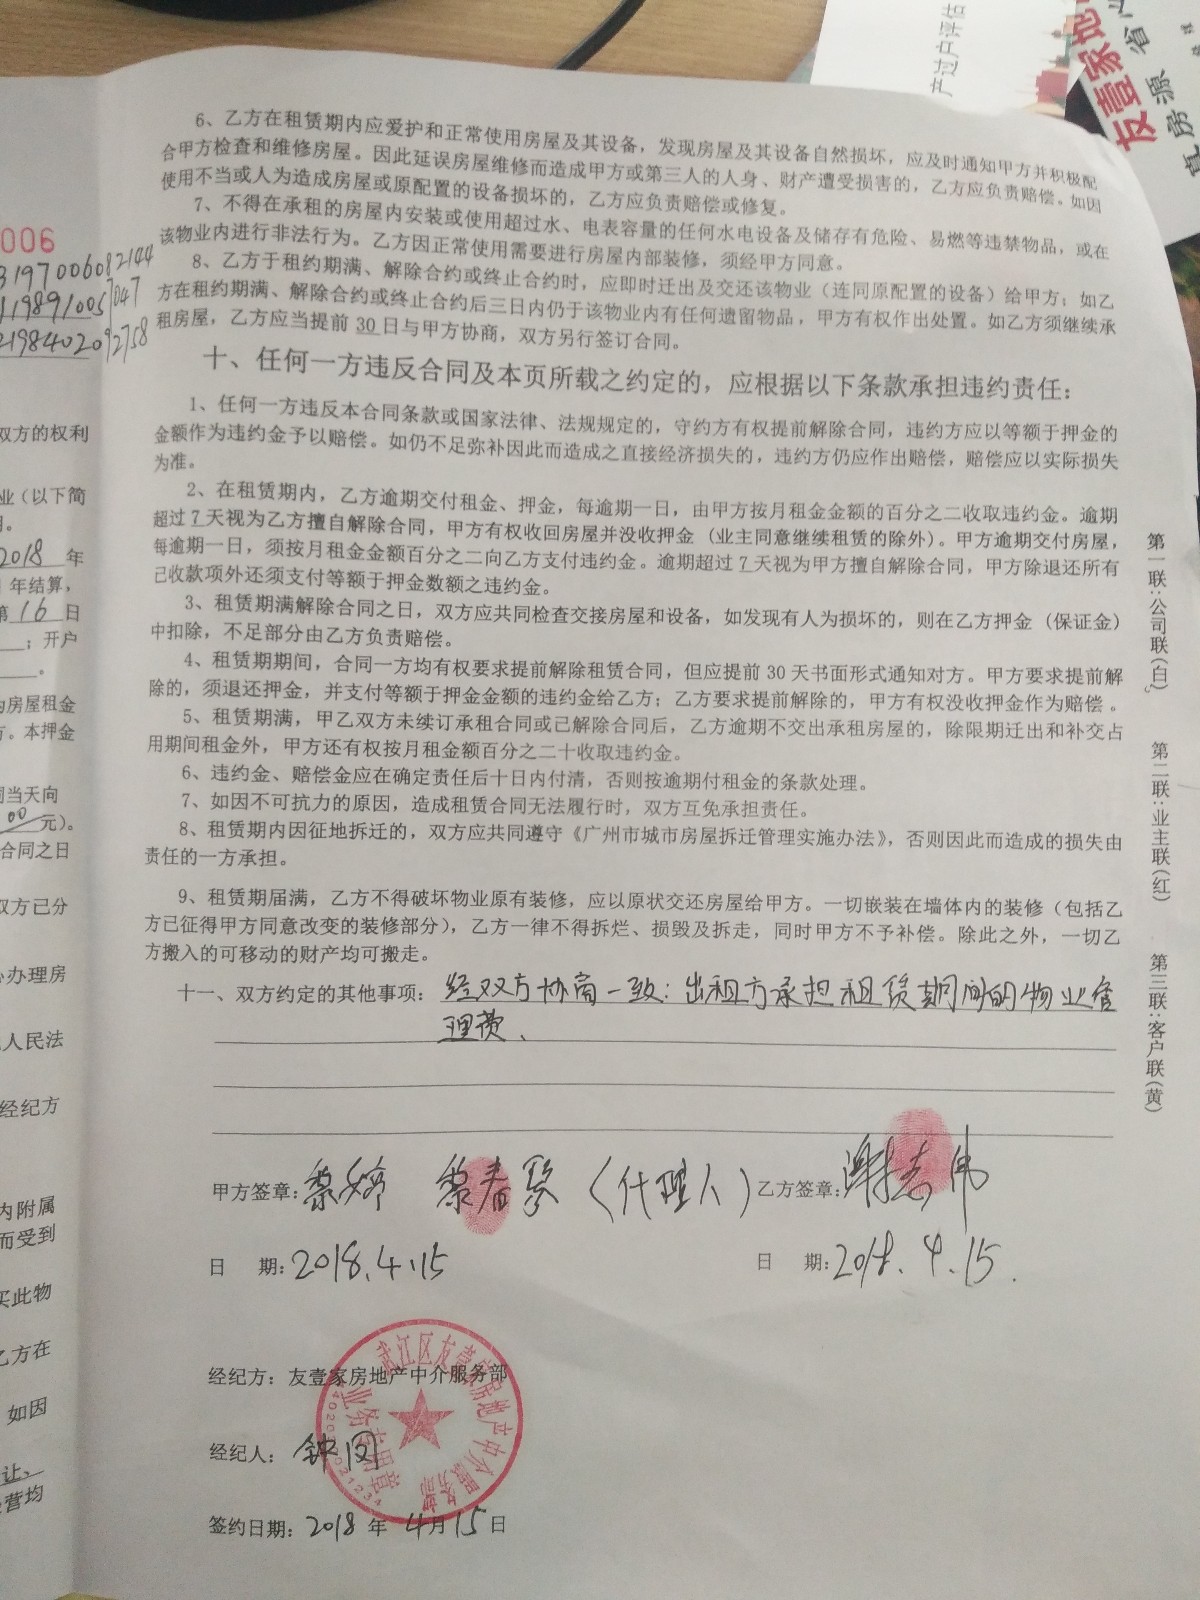 产过户评估
友壹家地
真房源 省
6、乙方在租赁期内应爱护和正常使用房屋及其设备，发现房屋及其设备自然损坏，应及时通知甲方并积极配
合甲方检查和维修房屋。因此延误房屋维修而造成甲方或第三人的人身、财产遭受损害的，乙方应负责赔偿。如因
使用不当或人为造成房屋或原配置的设备损坏的，乙方应负责赔偿或修复。
7、不得在承租的房屋内安装或使用超过水、电表容量的任何水电设备及储存有危险、易燃等违禁物品，或在
该物业内进行非法行为。乙方因正常使用需要进行房屋内部装修，须经甲方同意。
8、乙方于租约期满、解除合约或终止合约时，应即时迁出及交还该物业（连同原配置的设备）给甲方；如乙
方在租约期满、解除合约或终止合约后三日内仍于该物业内有任何遗留物品，甲方有权作出处置。如乙方须继续承
租房屋，乙方应当提前 30 日与甲方协商，双方另行签订合同。
十、任何一方违反合同及本页所载之约定的，应根据以下条款承担违约责任：
1、任何一方违反本合同条款或国家法律、法规规定的，守约方有权提前解除合同，违约方应以等额于押金的
金额作为违约金予以赔偿。如仍不足弥补因此而造成之直接经济损失的，违约方仍应作出赔偿，赔偿应以实际损失
为准。
2、在租赁期内，乙方逾期交付租金、押金，每逾期一日，由甲方按月租金金额的百分之二收取违约金。逾期
超过 7 天视为乙方擅自解除合同，甲方有权收回房屋并没收押金（业主同意继续租赁的除外）。甲方逾期交付房屋，
每逾期一日，须按月租金金额百分之二向乙方支付违约金。逾期超过 7 天视为甲方擅自解除合同，甲方除退还所有
已收款项外还须支付等额于押金数额之违约金。
3、租赁期满解除合同之日，双方应共同检查交接房屋和设备，如发现有人为损坏的，则在乙方押金（保证金）
中扣除，不足部分由乙方负责赔偿。
4、租赁期期间，合同一方均有权要求提前解除租赁合同，但应提前 30 天书面形式通知对方。甲方要求提前解
除的，须退还押金，并支付等额于押金金额的违约金给乙方；乙方要求提前解除的，甲方有权没收押金作为赔偿。
5、租赁期满，甲乙双方未续订承租合同或已解除合同后，乙方逾期不交出承租房屋的，除限期迁出和补交占
用期间租金外，甲方还有权按月租金额百分之二十收取违约金。
6、违约金、赔偿金应在确定责任后十日内付清，否则按逾期付租金的条款处理。
7、如因不可抗力的原因，造成租赁合同无法履行时，双方互免承担责任。
8、租赁期内因征地拆迁的，双方应共同遵守《广州市城市房屋拆迁管理实施办法》，否则因此而造成的损失由
责任的一方承担。
9、租赁期届满，乙方不得破坏物业原有装修，应以原状交还房屋给甲方。一切嵌装在墙体内的装修（包括乙
方已征得甲方同意改变的装修部分），乙方一律不得拆烂、损毁及拆走，同时甲方不予补偿。除此之外，一切乙
方搬入的可移动的财产均可搬走。
十一、双方约定的其他事项：经双方协商一致：出租方承担租赁期间的物业管
理费、
甲方签章：黎婷 黎春琴（代理人） 乙方签章：谢志伟
日 期：2018.4.15 日 期：2018.4.15.
经纪方：友壹家房地产中介服务部
经纪人：钟闵
签约日期：2018 年 4月15日
武江区友壹家房地产中介服务部
业务专用章
第一联：公司联（白）
第二联：业主联（红）
第三联：客户联（黄）
006
3197006082144
1198910057047
2198402092758
双方的权利
业（以下简
2018 年
年结算，
第 16 日
；开户
房屋租金
方。本押金
同当天向
00 元）。
合同之日
双方已分
办理房
人民法
经纪方
内附属
而受到
买此物
乙方在
如因
让、
营均